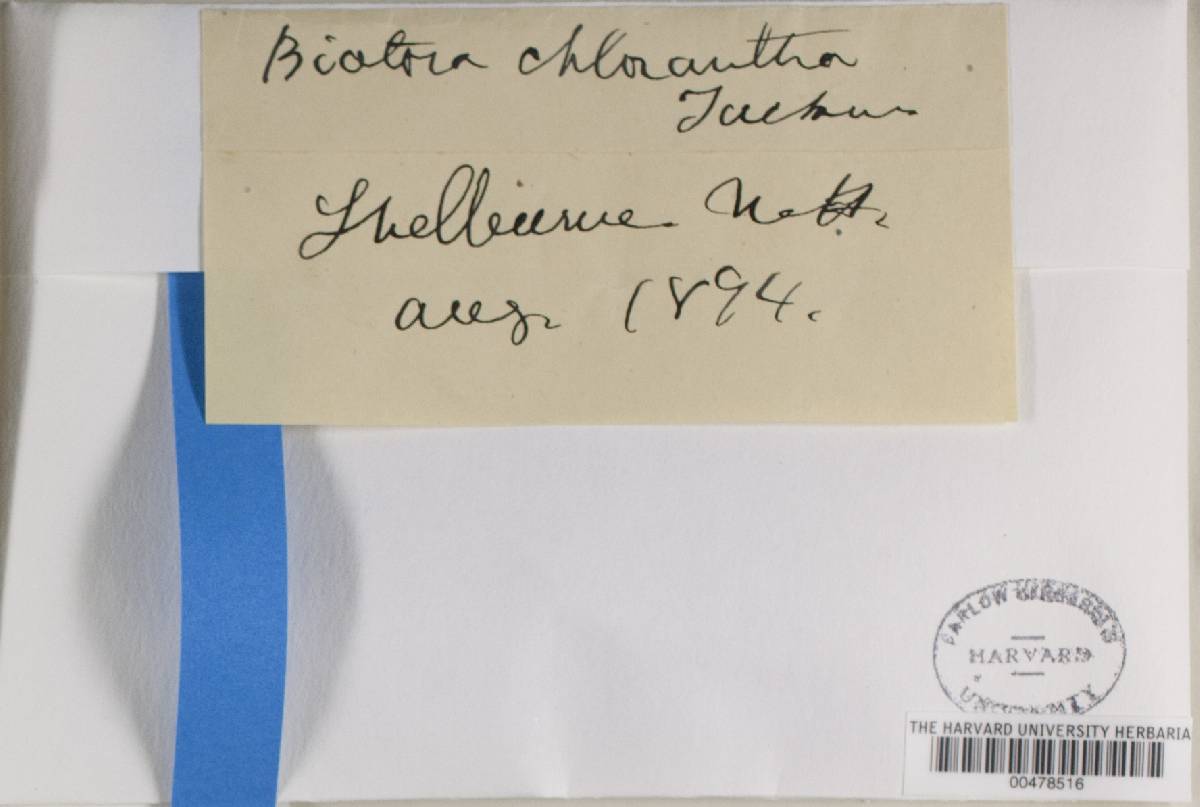 Biatora chlorantha
Tuckerm.
Shelburne N.H.
Aug. 1894.
FARLOW HERBARIUM
HARVARD
UNIVERSITY
THE HARVARD UNIVERSITY HERBARIA
00478516